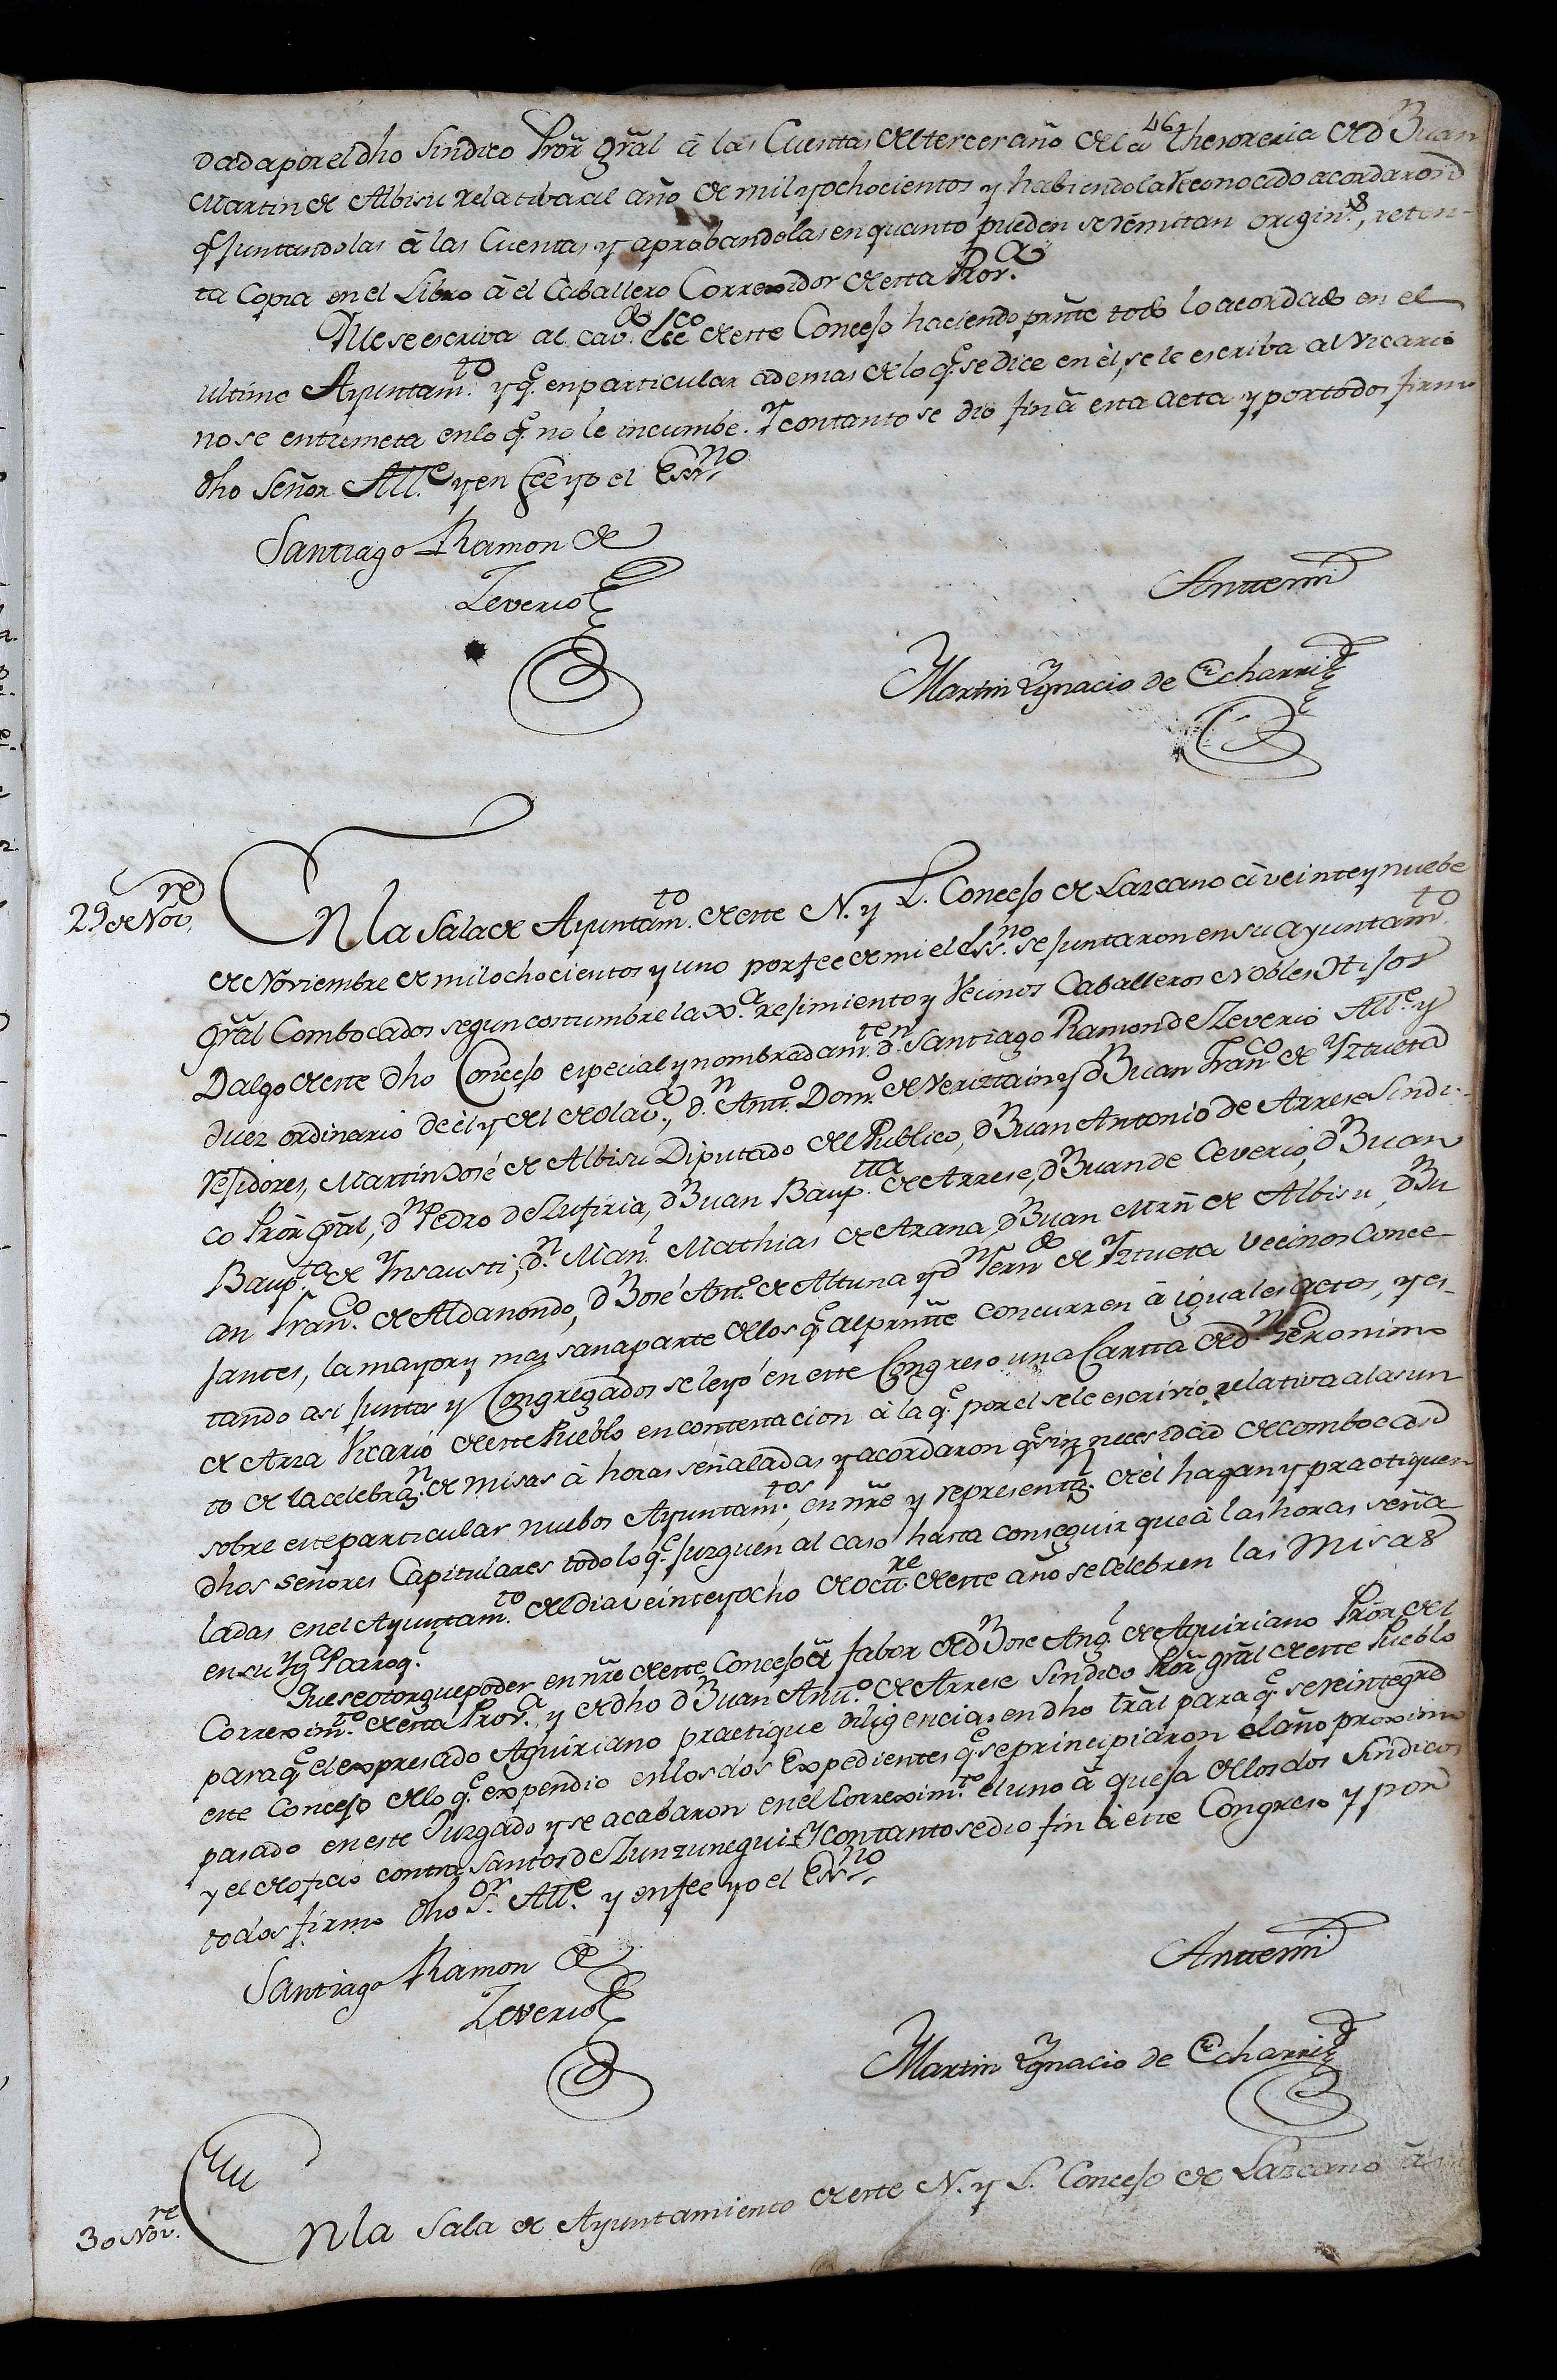 461
Dada por el dho Sindico Pror gral à las Cuentas del tercer año de la thesoreria de dn Juan
Martin de Albisu relativa al año de mil y ochocientos y habiendola reconocido acordaron
q juntandolas à las Cuentas y aprobandolas en quanto pueden se remitan origin.s, reten-
ta Copia en el Libro à el Caballero Correxidor de esta Prov.a
Que se escriva al cav.do Ecc.co de este Concejo haciendo prnte todo lo acordado en el
ultimo Ayuntam.to y q.e en particular ademas de lo q.e se dice en èl, se le escriba al Vicario
no se entremeta en lo q.e no le incumbe. Y con tanto se dio fin à esta acta y por todos firmo
dho Señor All.e y en fee yo el Essno
Santiago Ramon de
Zeverio
Antemi
Martin Ygnacio de Echarri
29 de Nov.re
En la Sala de Ayuntam.to de este N. y L. Concejo de Lazcano à veinte y nuebe
de Noviembre de mil ochocientos y uno por fee de mi el Ess.no se juntaron en su ayuntam.to
gral Combocados segun costumbre la Xa. rejimiento y Vecinos Caballeros Nobles Hijos
Dalgo de este dho Concejo especial y nombradam.te dn. Santiago Ramon de Zeverio All.e y
Juez ordinario de èl y de el de olav.a, d.n Antt.o Dom.o de Veriztain y dn Juan Fran.co de Yztueta
rejidores, Martin José de Albisu Diputado del Publico, dn Juan Antonio de Arrese Sindi-
co Pror gral, dn Pedro de Lufiria, dn Juan Baup.tta de Arrese, dn Juan de Ceverio, dn Juan
Baup.ta de Ynsausti, d.n Man.l Matthias de Arana, dn Juan Mrñ de Albisu, dn Ju
an Fran.co de Aldanondo, dn José Ant.o de Altuna y dn Fern.do de Yztueta Vecinos Conce
jantes, la mayor y mas sana parte de los q.e al prnte concurren à iguales actos, y es-
tando asi juntos y Congregados se leyó en este Congreso una Cartta de d.n Geronimo
de Arza Vicario de este Pueblo en contestacion à la q.e por el se le escrivio, relativa al asun
to de la celebraz.n de misas à horas señaladas y acordaron q.e sin necesidad de combocar
sobre este particular nuebos Ayuntam.tos, en nre y representaz.n de èl hagan y practiquen
dhos señores Capitulares todo lo q.e juzguen al caso hasta conseguir que à las horas seña
ladas en el Ayuntam.to del dia veinte y ocho de octt.re de este año se celebren las Misas
en su Yg.a Parroq.l
Que se otorgue poder en nre de este Concejo à fabor de dn Jose Ang.l de Aguiriano Pror del
Correxim.to de esta Prov.a, y de dho dn Juan Antt.o de Arrese Sindico Pror gral de este Pueblo
para q.e el expresado Aguiriano practique diligencias en dho tral para q.e se reintegre
este Concejo de lo q.e expendio en los dos Expedientes q.e se principiaron el año proximo
pasado en este Juzgado y se acabaron en el Correxim.to el uno à queja de los dos Sindicos
y el de oficio contra Santos de Zunzunegui. Y con tanto se dio fin à este Congreso y por
todos firmo dho S.or All.e y en fee yo el Essno
Santiago Ramon de
Zeverio
Antemi
Martin Ygnacio de Echarri
30 Nov.re
En la Sala de Ayuntamiento de este N. y L. Concejo de Lazcano à